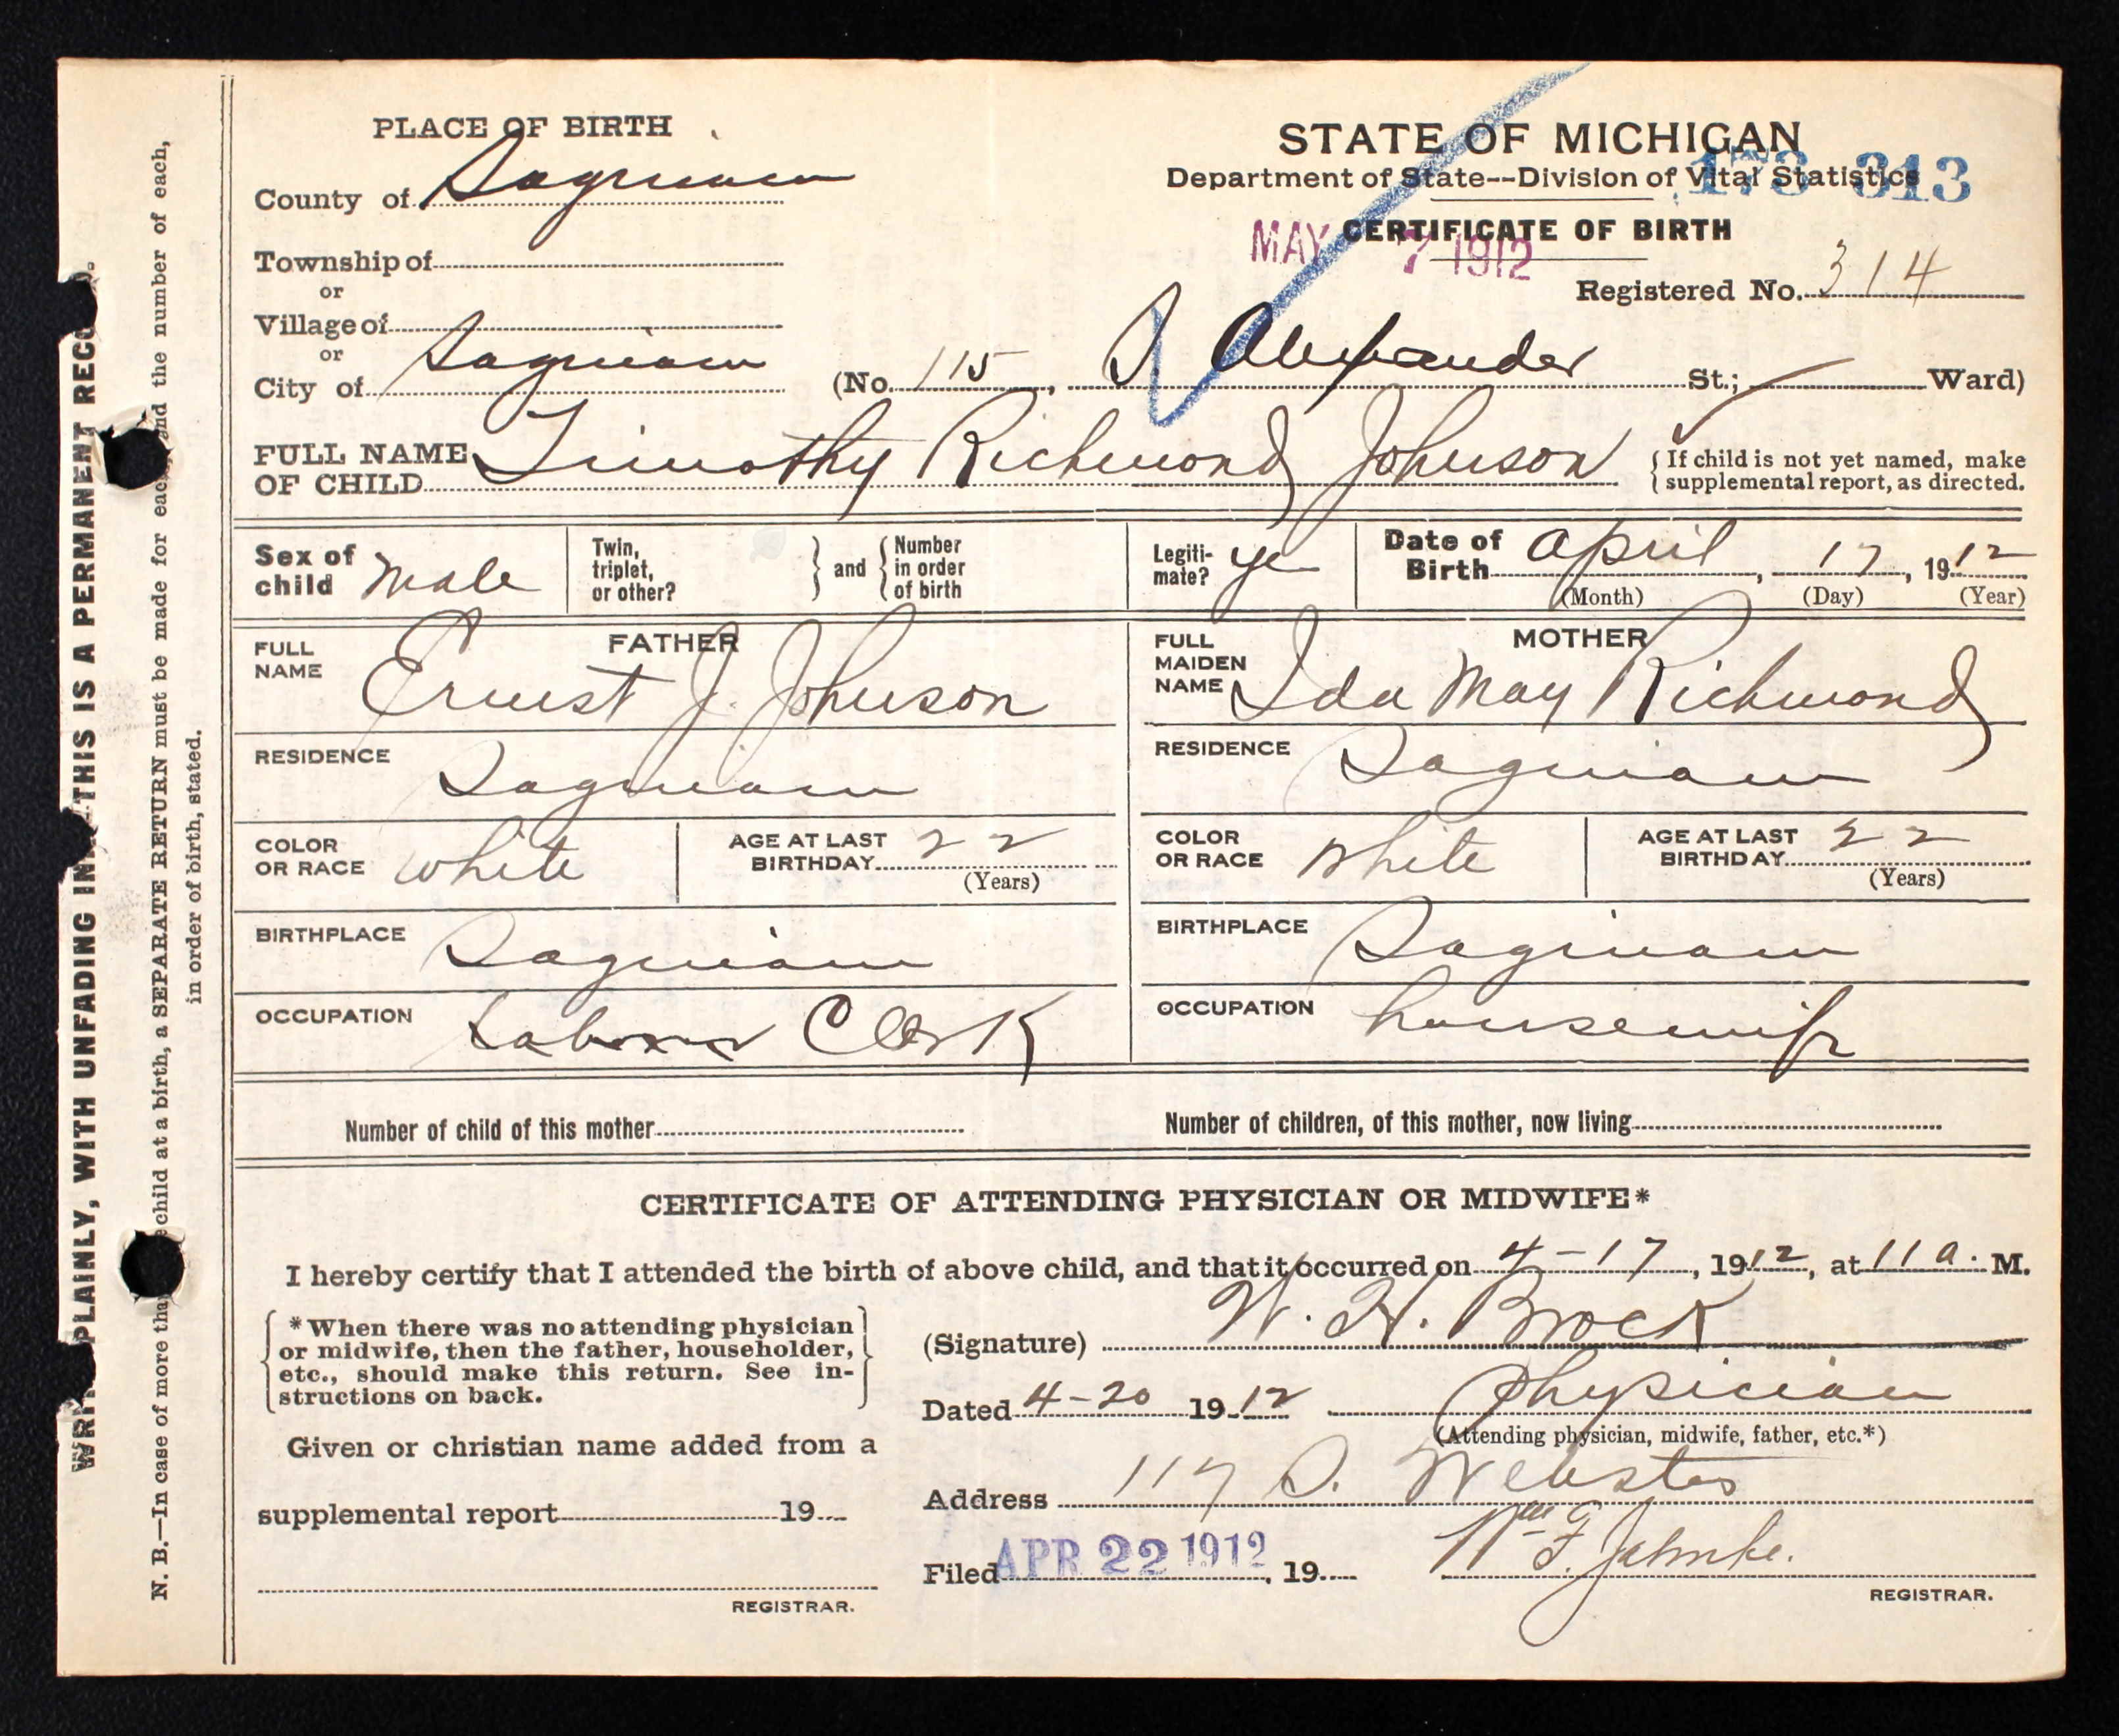 WRITE PLAINLY, WITH UNFADING INK—THIS IS A PERMANENT RECORD.
N. B.—In case of more than one child at a birth, a SEPARATE RETURN must be made for each, and the number of each,
in order of birth, stated.
PLACE OF BIRTH
County of Saginaw
Township of
or
Village of
or
City of Saginaw
STATE OF MICHIGAN
Department of State--Division of Vital Statistics
173 313
CERTIFICATE OF BIRTH
MAY 7 1912
Registered No. 314
(No. 115, S Alexander St.; Ward)
FULL NAME OF CHILD Timothy Richmond Johnson
{ If child is not yet named, make
supplemental report, as directed.
Sex of child Male
Twin, triplet, or other?
} and {
Number in order of birth
Legiti-mate? ye
Date of Birth April, 17, 1912
(Month) (Day) (Year)
FATHER
FULL NAME Ernest J. Johnson
RESIDENCE Saginaw
COLOR OR RACE White
AGE AT LAST BIRTHDAY 22
(Years)
BIRTHPLACE Saginaw
OCCUPATION Clerk
MOTHER
FULL MAIDEN NAME Ida May Richmond
RESIDENCE Saginaw
COLOR OR RACE White
AGE AT LAST BIRTHDAY 22
(Years)
BIRTHPLACE Saginaw
OCCUPATION housewife
Number of child of this mother
Number of children, of this mother, now living
CERTIFICATE OF ATTENDING PHYSICIAN OR MIDWIFE*
I hereby certify that I attended the birth of above child, and that it occurred on 4-17, 1912, at 11 a. M.
{ *When there was no attending physician
or midwife, then the father, householder,
etc., should make this return. See in-
structions on back. }
(Signature) W. H. Brock
Dated 4-20 1912 Physician
(Attending physician, midwife, father, etc.*)
Given or christian name added from a
supplemental report 19
REGISTRAR.
Address 117 S. Webster
Filed APR 22 1912, 19
Wm F. Jahnke.
REGISTRAR.